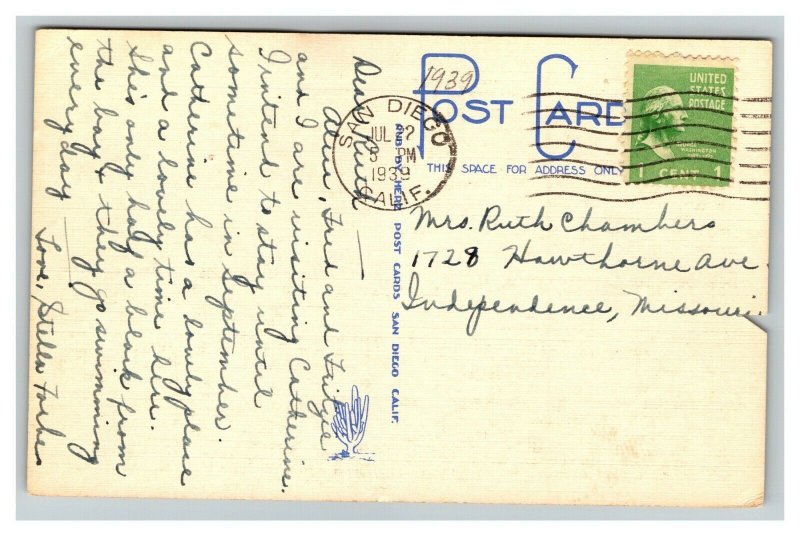 1939
POST CARD
THIS SPACE FOR ADDRESS ONLY
SAN DIEGO
JUL 22
3 PM
1939
CALIF.
UNITED
STATES
POSTAGE
GEORGE
WASHINGTON
1 CENT 1
Mrs. Ruth Chambers
1728 Hawthorne Ave.
Independence, Missouri.
PUB BY HERZ POST CARDS SAN DIEGO CALIF.
Dear Ruth —
Fred and
and I are visiting Catherine.
I intend to stay until
sometime in September.
Catherine has a lovely place
and a lovely time here.
She's only half a block from
the bay & they go swimming
everyday
Love, Stella Forbes